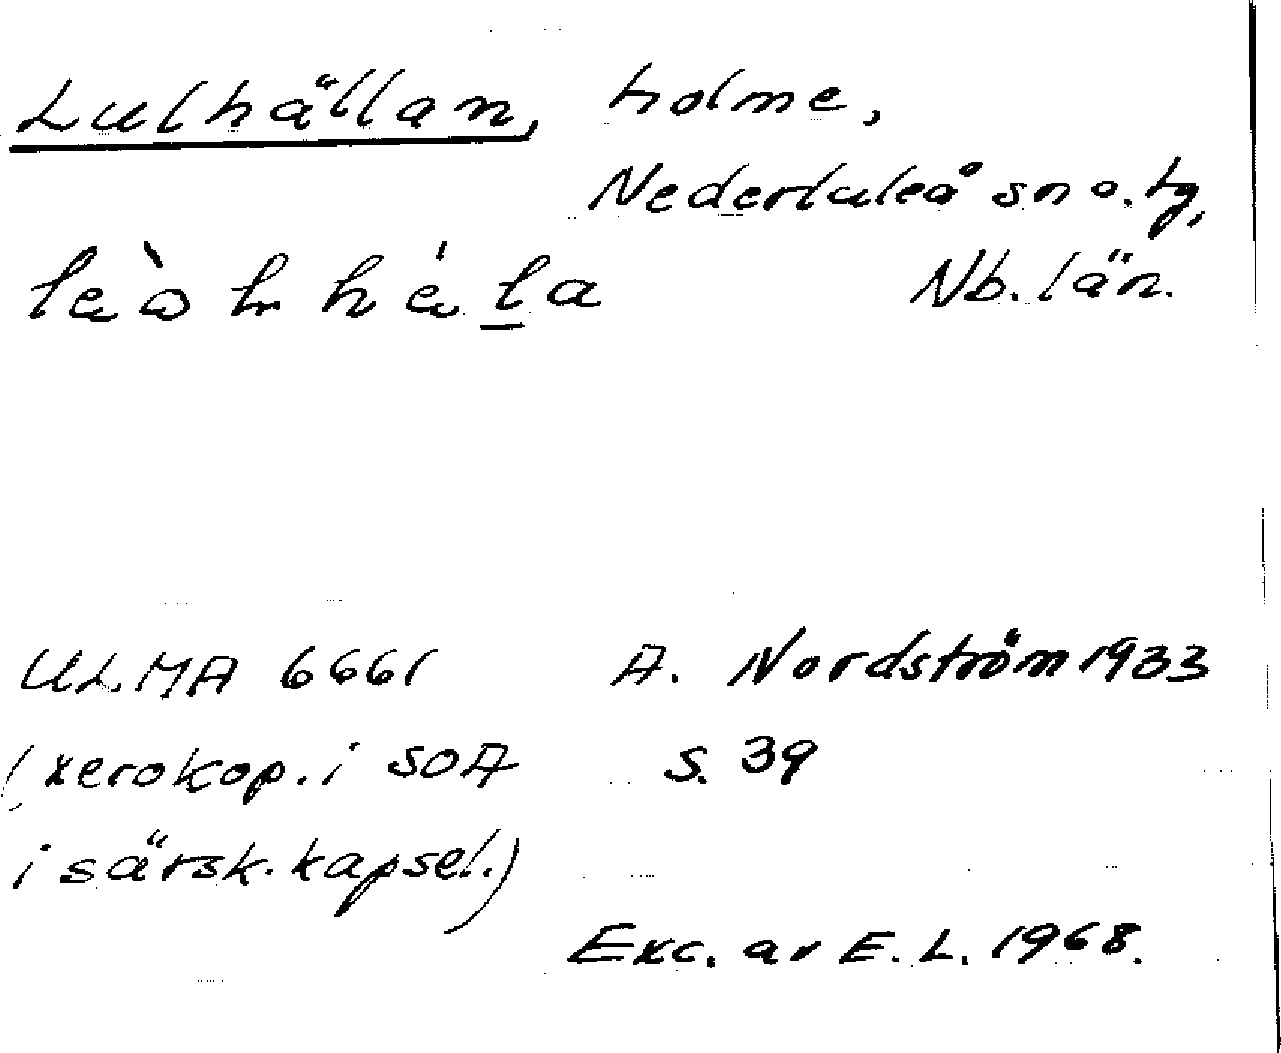 Lulhällan, holme,
Nederluleå sn o. tg,
Nb. län.
ULMA 6661 A. Nordström 1933
(xerokop. i SOA s. 39
i särsk. kapsel.)
Exc. av E. L. 1968.